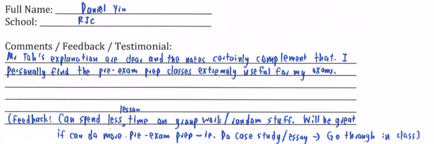 Full Name: Daniel Yiu
School: RJC
Comments / Feedback / Testimonial:
Mr Toh's explanation are clear and the notes certainly complement that. I
personally find the pre-exam prep classes extremely useful for my exams.
lesson
(Feedback: Can spend less time on group work/random stuff. Will be great
if can do more pre-exam prep - ie. Do case study/essay → Go through in class)